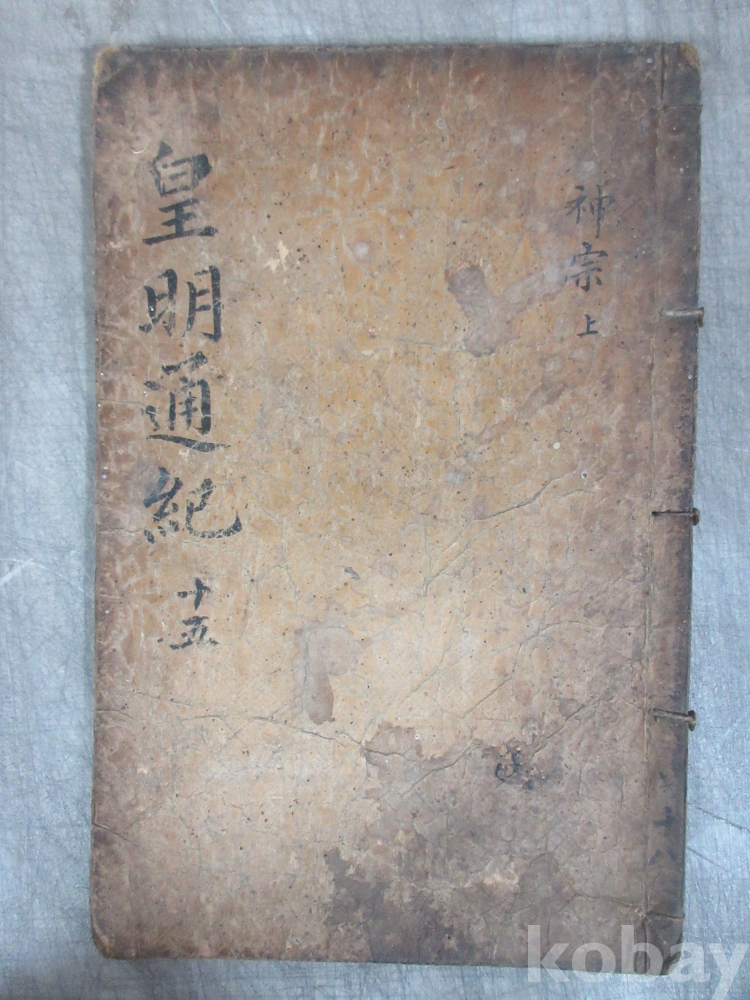 神宗 上
皇明通紀 十五
kobay